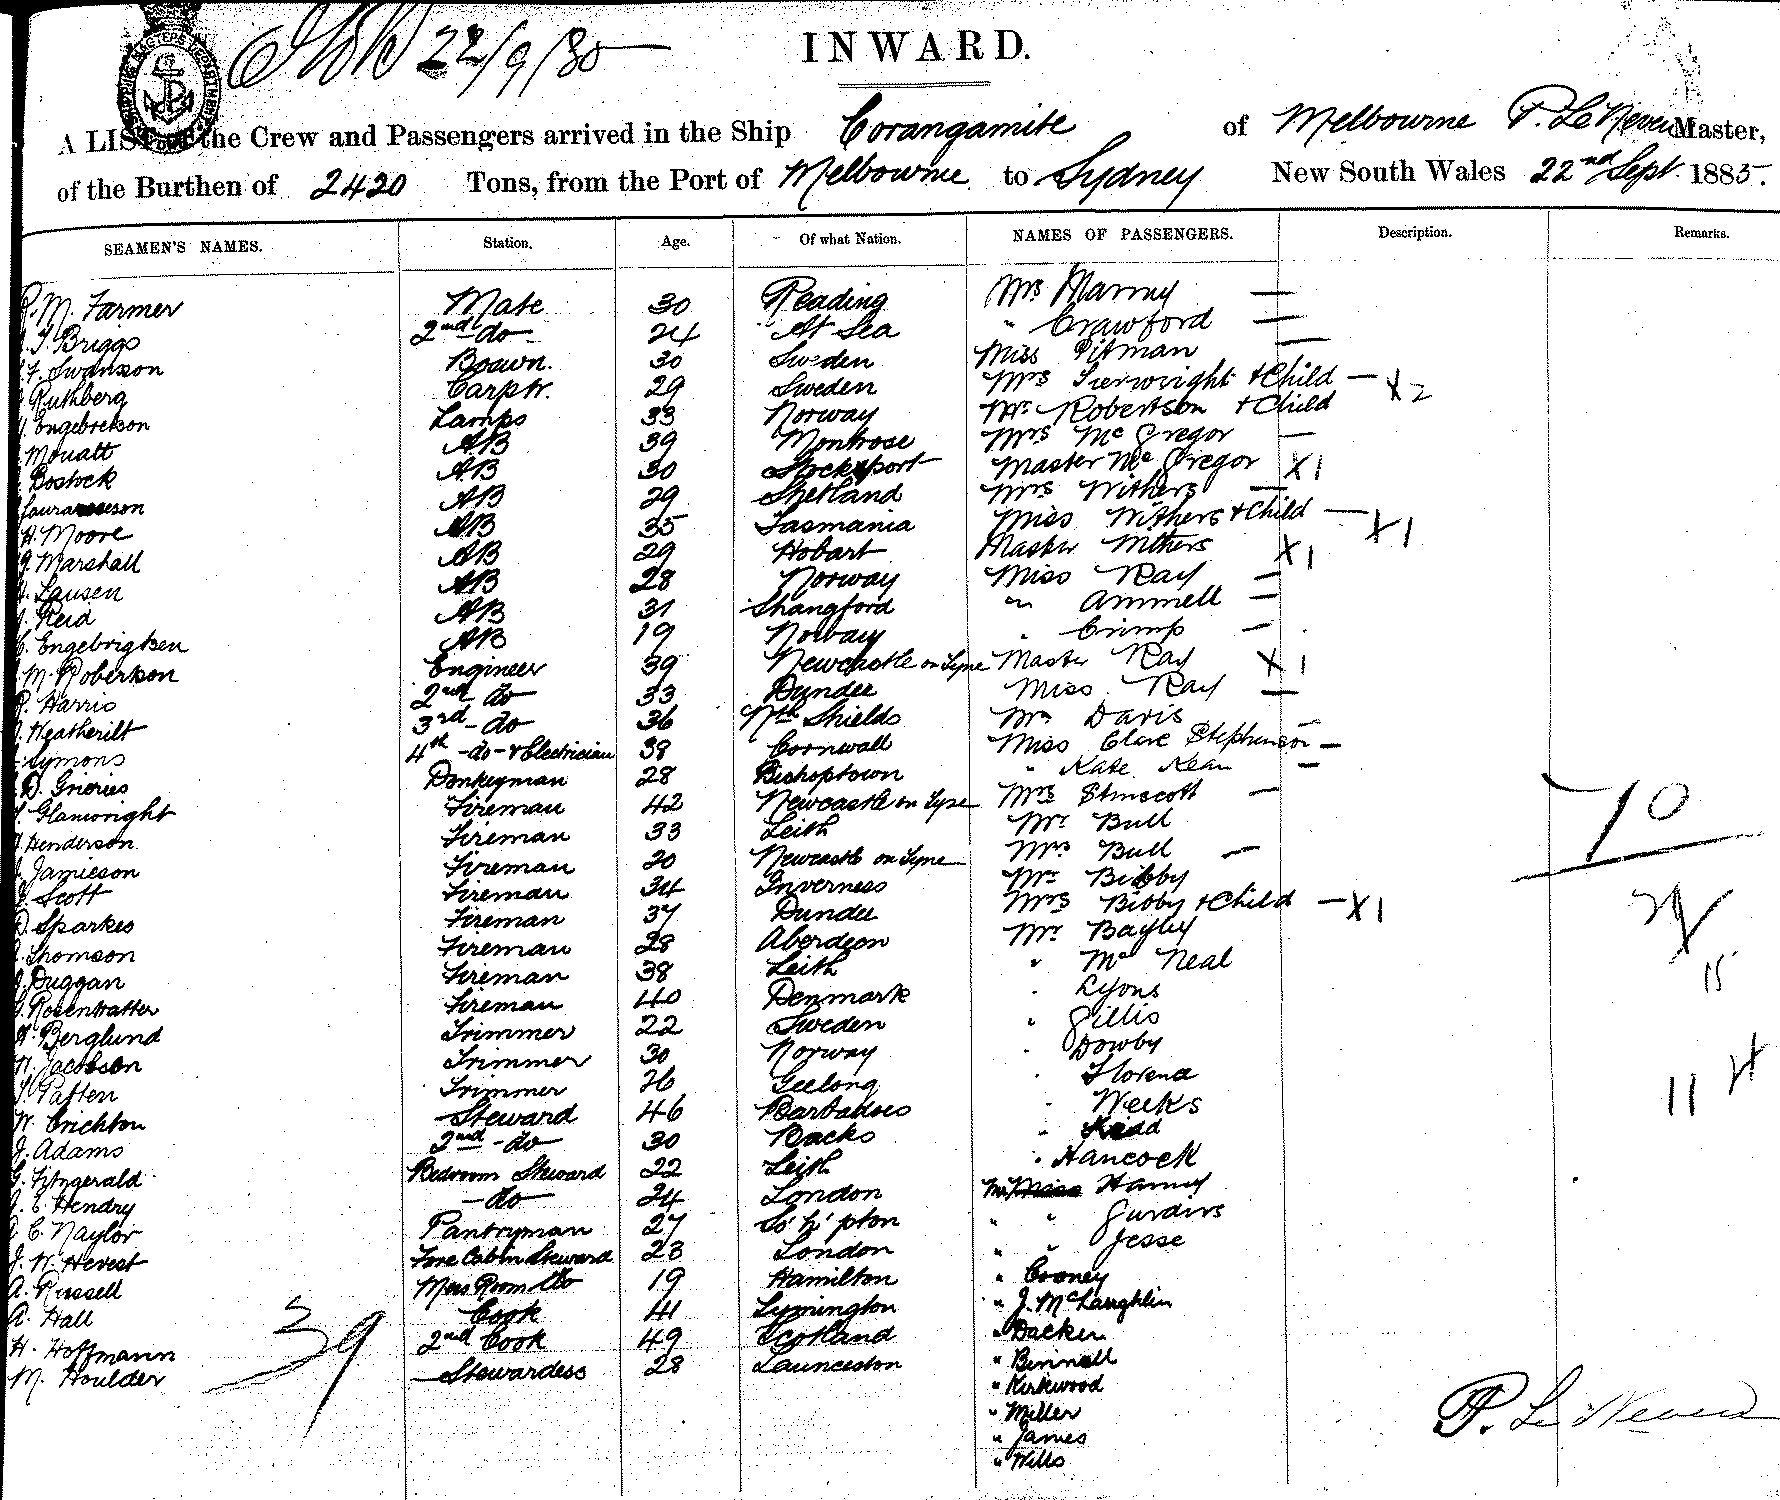 22/9/85
INWARD.
A LIST of the Crew and Passengers arrived in the Ship Corangamite of Melbourne P. Le Neveu Master,
of the Burthen of 2420 Tons, from the Port of Melbourne to Sydney New South Wales 22nd Sept. 1885.
SEAMEN'S NAMES. Station. Age. Of what Nation. NAMES OF PASSENGERS. Description. Remarks.
R. M. Farmer Mate 30 Reading Mrs —
T. Briggs 2nd do 24 At Sea " Crawford —
F. Swanson Boswn. 30 Sweden Miss Pitman —
Ruthberg Carptr. 29 Sweden Mrs Sierwright + Child — X2
Engebretson Lamps 33 Norway Mr. Robertson + Child
Mouatt AB 39 Montrose Mrs McGregor —
Bostock AB 30 Stockport Master McGregor X1
AB 29 Shetland Mrs Withers —
H. Moore AB 35 Tasmania Miss Withers + Child — X1
J. Marshall AB 29 Hobart Master Withers X1
Lausen AB 28 Norway Miss Ray —
J. Reid AB 31 Shangford " Ammell —
C. Engebrigtsen AB 19 Norway " Crimp —
M. Robertson Engineer 39 Newcastle on Tyne Master Ray X1
R. Harris 2nd do 33 Dundee Miss Ray —
Heatherilt 3rd - do 36 Nth Shields Mr Davis
Symons 4th - do - + Electrician 38 Cornwall Miss Clare Stephenson —
D. Grieries Donkeyman 28 Bishoptown " Kate Kean —
Glanwright Fireman 42 Newcastle on Tyne Mrs Stinscott —
Henderson Fireman 33 Leith Mr Bull
J. Jamieson Fireman 20 Newcastle on Tyne Mrs Bull —
J. Scott Fireman 34 Inverness Mr Bibby
D. Sparkes Fireman 37 Dundee Mrs Bibby + Child — X1
Thomson Fireman 28 Aberdeen Mr Bayley
J. Duggan Fireman 38 Leith " McNeal
G. Rosentratter Fireman 40 Denmark " Lyons
Berglund Trimmer 22 Sweden " Gillis
N. Jacobson Trimmer 30 Norway " Dowby
T. Patten Trimmer 26 Geelong " Florend
W. Crichton Steward 46 Barbadoes " Weeks
J. Adams 2nd - do 30 Bucks " Kidd
G. Fitzgerald Bedroom Steward 22 Leith " Hancock
J. E. Hendry - do 24 London Mr
C. Naylor Pantryman 27 So'h'pton " "
J. W. Hevest Fore Cabin Steward 23 London " " Jesse
A. Russell Mess Room do 19 Hamilton " Cooney
A. Hall Cook 41 Lymington " J. McLaughlin
H. Hoffmann 2nd Cook 49 Scotland " Dacker
M. Houlder Stewardess 28 Launceston " Binnall
" Kirkwood
" Miller
" James
" Wills
39
70
15
11
P. Le Neveu